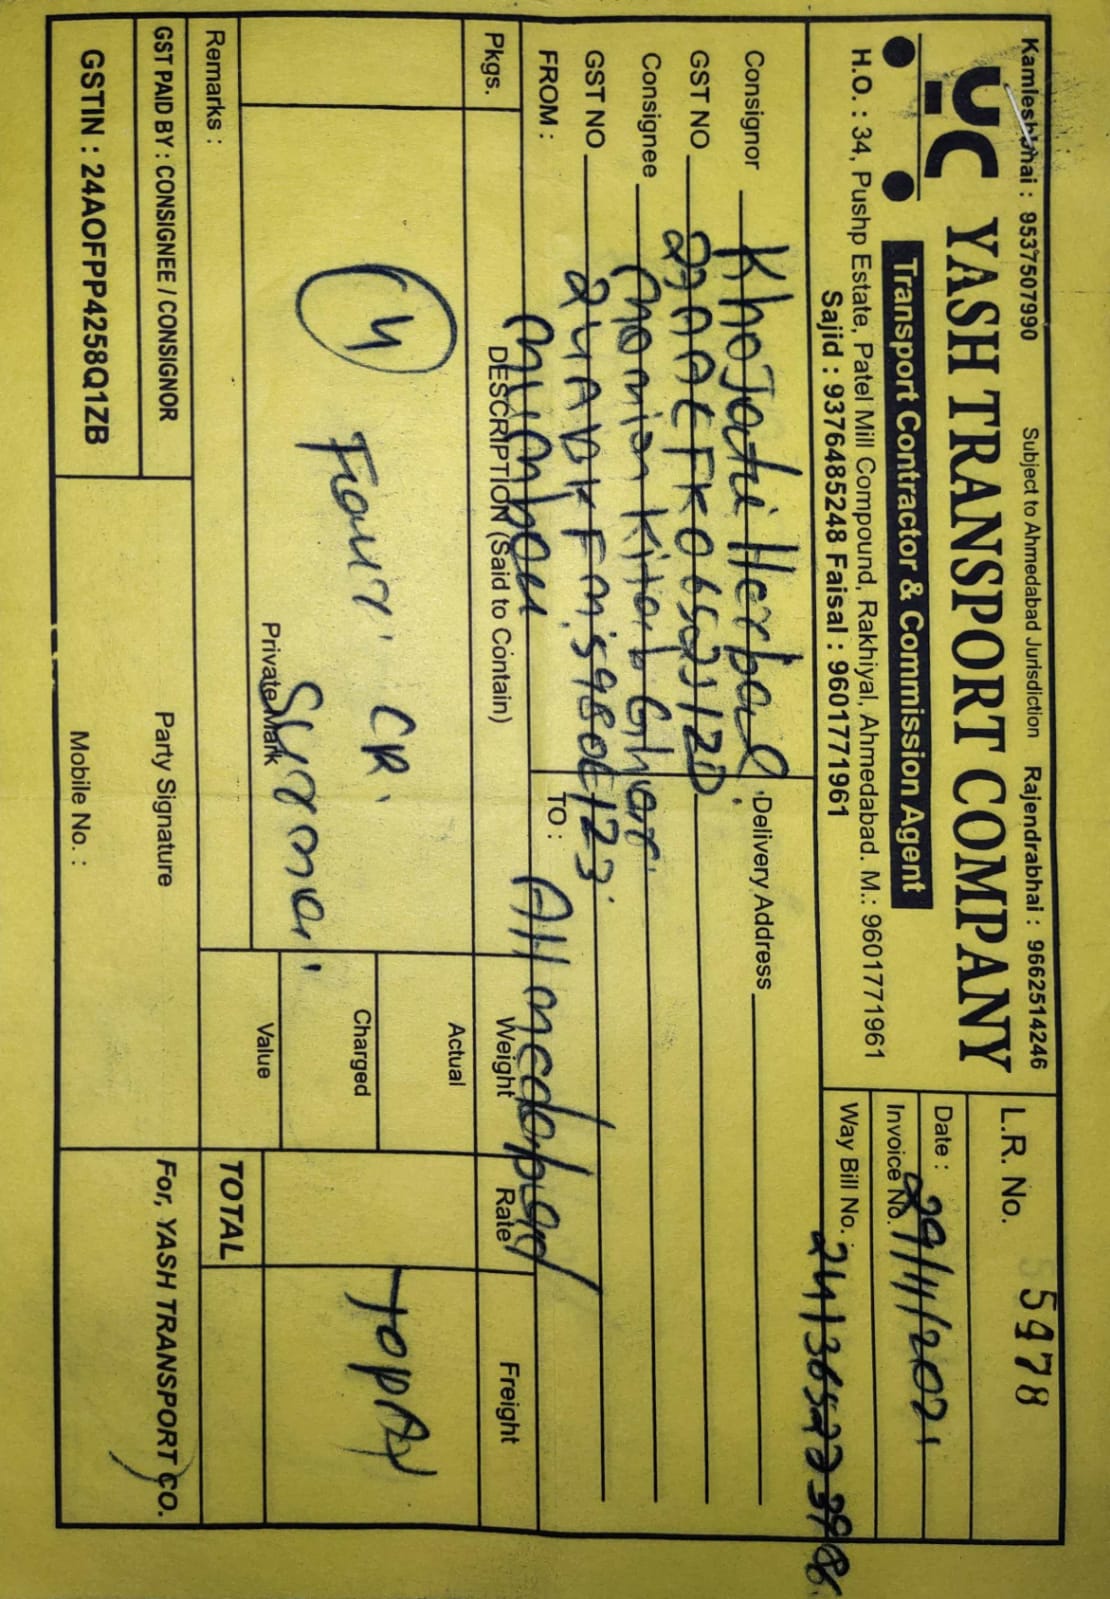 Kamleshbhai : 9537507990 Subject to Ahmedabad Jurisdiction Rajendrabhai : 9662514246
YC YASH TRANSPORT COMPANY
Transport Contractor & Commission Agent
H.O. : 34, Pushp Estate, Patel Mill Compound, Rakhiyal, Ahmedabad. M.: 9601771961
Sajid : 9376485248 Faisal : 9601771961
L.R. No. 5978
Date : 29/11/2021
Invoice No.
Way Bill No. 241365223986
Consignor Khojati Herbal Delivery Address
GST NO
Consignee Momin Kitab Ghar
GST NO 24ABKFM5980E1Z3
FROM : Mumbai TO : Ahmedabad
Pkgs. DESCRIPTION (Said to Contain) Weight Rate Freight
4 Four CR. Actual
Charged ToPAY
Surma
Private Mark Value
Remarks : TOTAL
GST PAID BY : CONSIGNEE / CONSIGNOR Party Signature For, YASH TRANSPORT CO.
GSTIN : 24AOFPP4258Q1ZB Mobile No. :